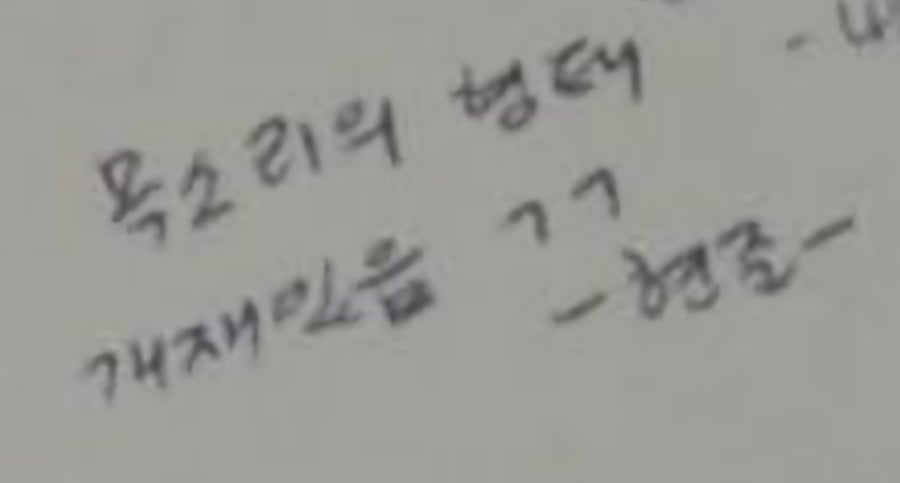 목소리의 형태
개재밌음 ㄱㄱ
-현준-